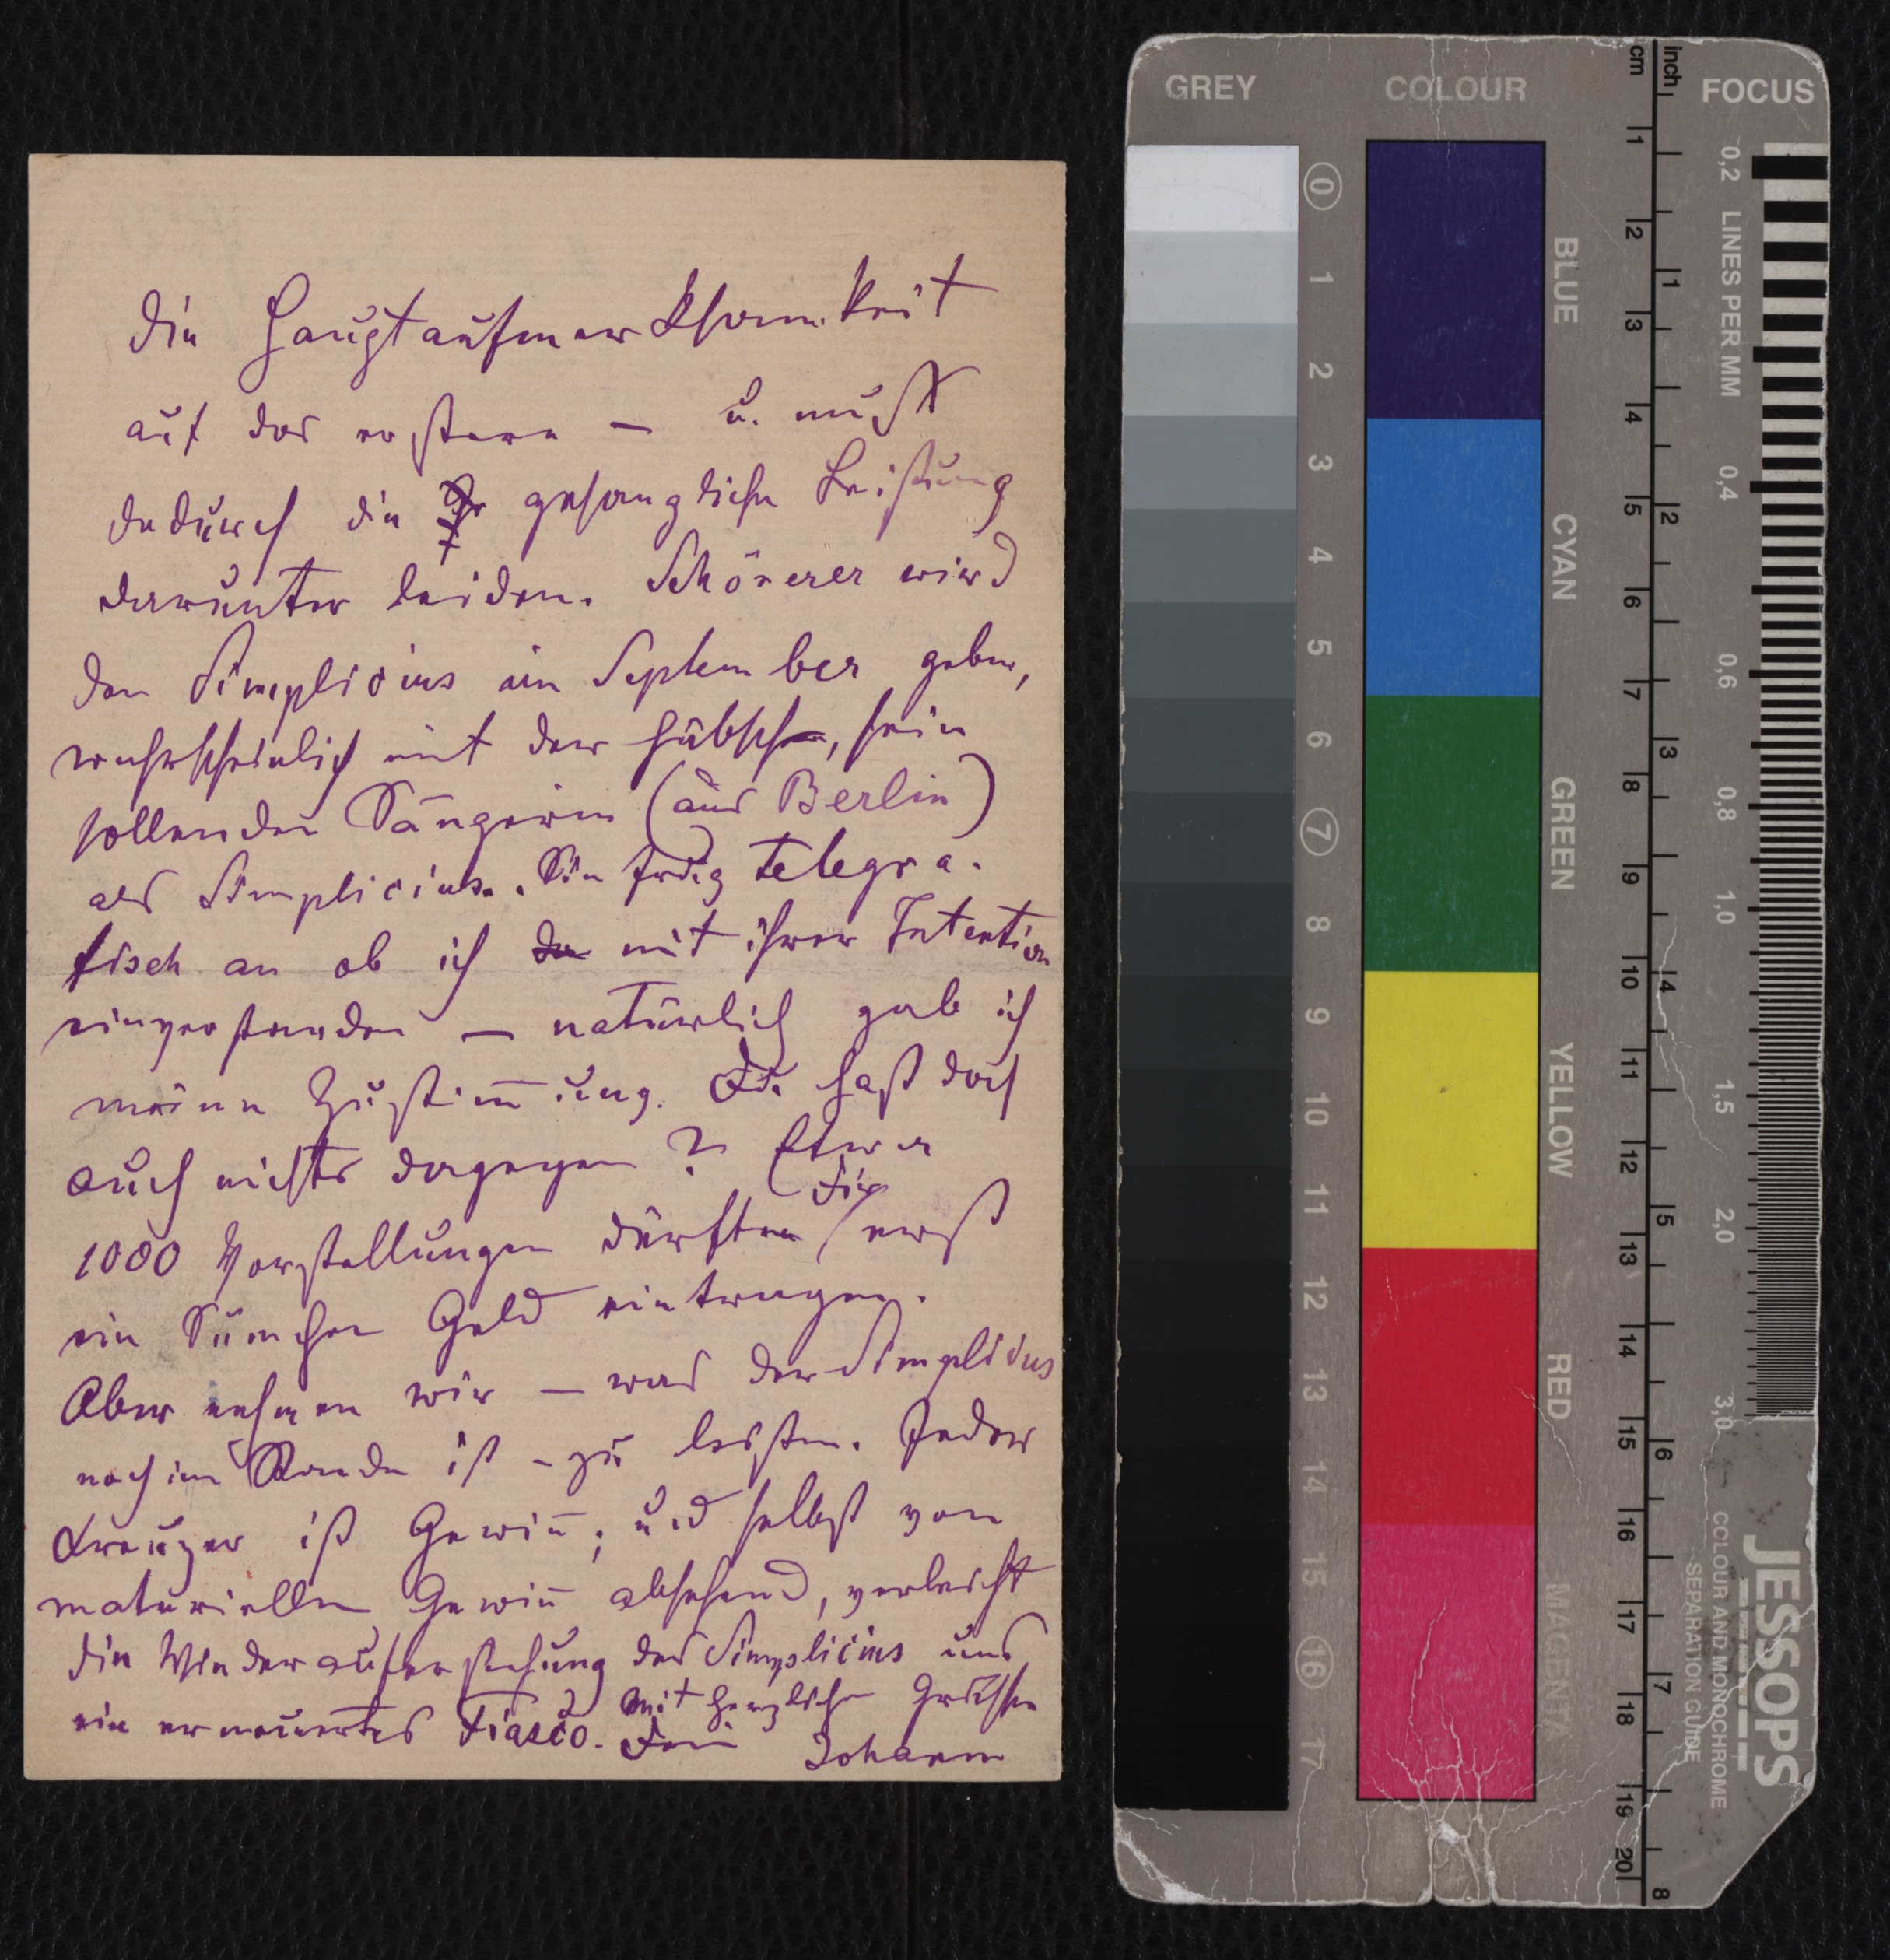 die Hauptaufmerksamkeit
auf das erstere — u. muß
dadurch die gesangliche Leistung
darunter leiden. Schönerer wird
den Simplicius im September geben,
wahrscheinlich mit der hübsch, sein
sollenden Sängerin (aus Berlin)
als Simplicius. Sie frug telegra-
fisch an ob ich mit ihrer Intention
einverstanden — natürlich gab ich
meine Zustim̅ung. Du hast doch
auch nichts dagegen? Etwa
1000 Vorstellungen dürften Dir erst
ein Sümchen Geld eintragen.
Aber nehmen wir — was der Simplicius
noch im Stande ist - zu leisten. Jeder
Kreuzer ist Gewin̅; und selbst von
materiellen Gewin̅ absehend, verlöscht
die Wiederauferstehung des Simplicius uns
ein erneuertes Fiasco. Mit herzlichen Grüssen
Dein Johann
GREY
COLOUR
FOCUS
cm
inch
0 1 2 3 4 5 6 7 8 9 10 11 12 13 14 15 16 17
BLUE
CYAN
GREEN
YELLOW
RED
MAGENTA
1 2 3 4 5 6 7 8 9 10 11 12 13 14 15 16 17 18 19 20
1 2 3 4 5 6 7 8
LINES PER MM
0,2
0,4
0,6
0,8
1,0
1,5
2,0
3,0
JESSOPS
COLOUR AND MONOCHROME
SEPARATION GUIDE